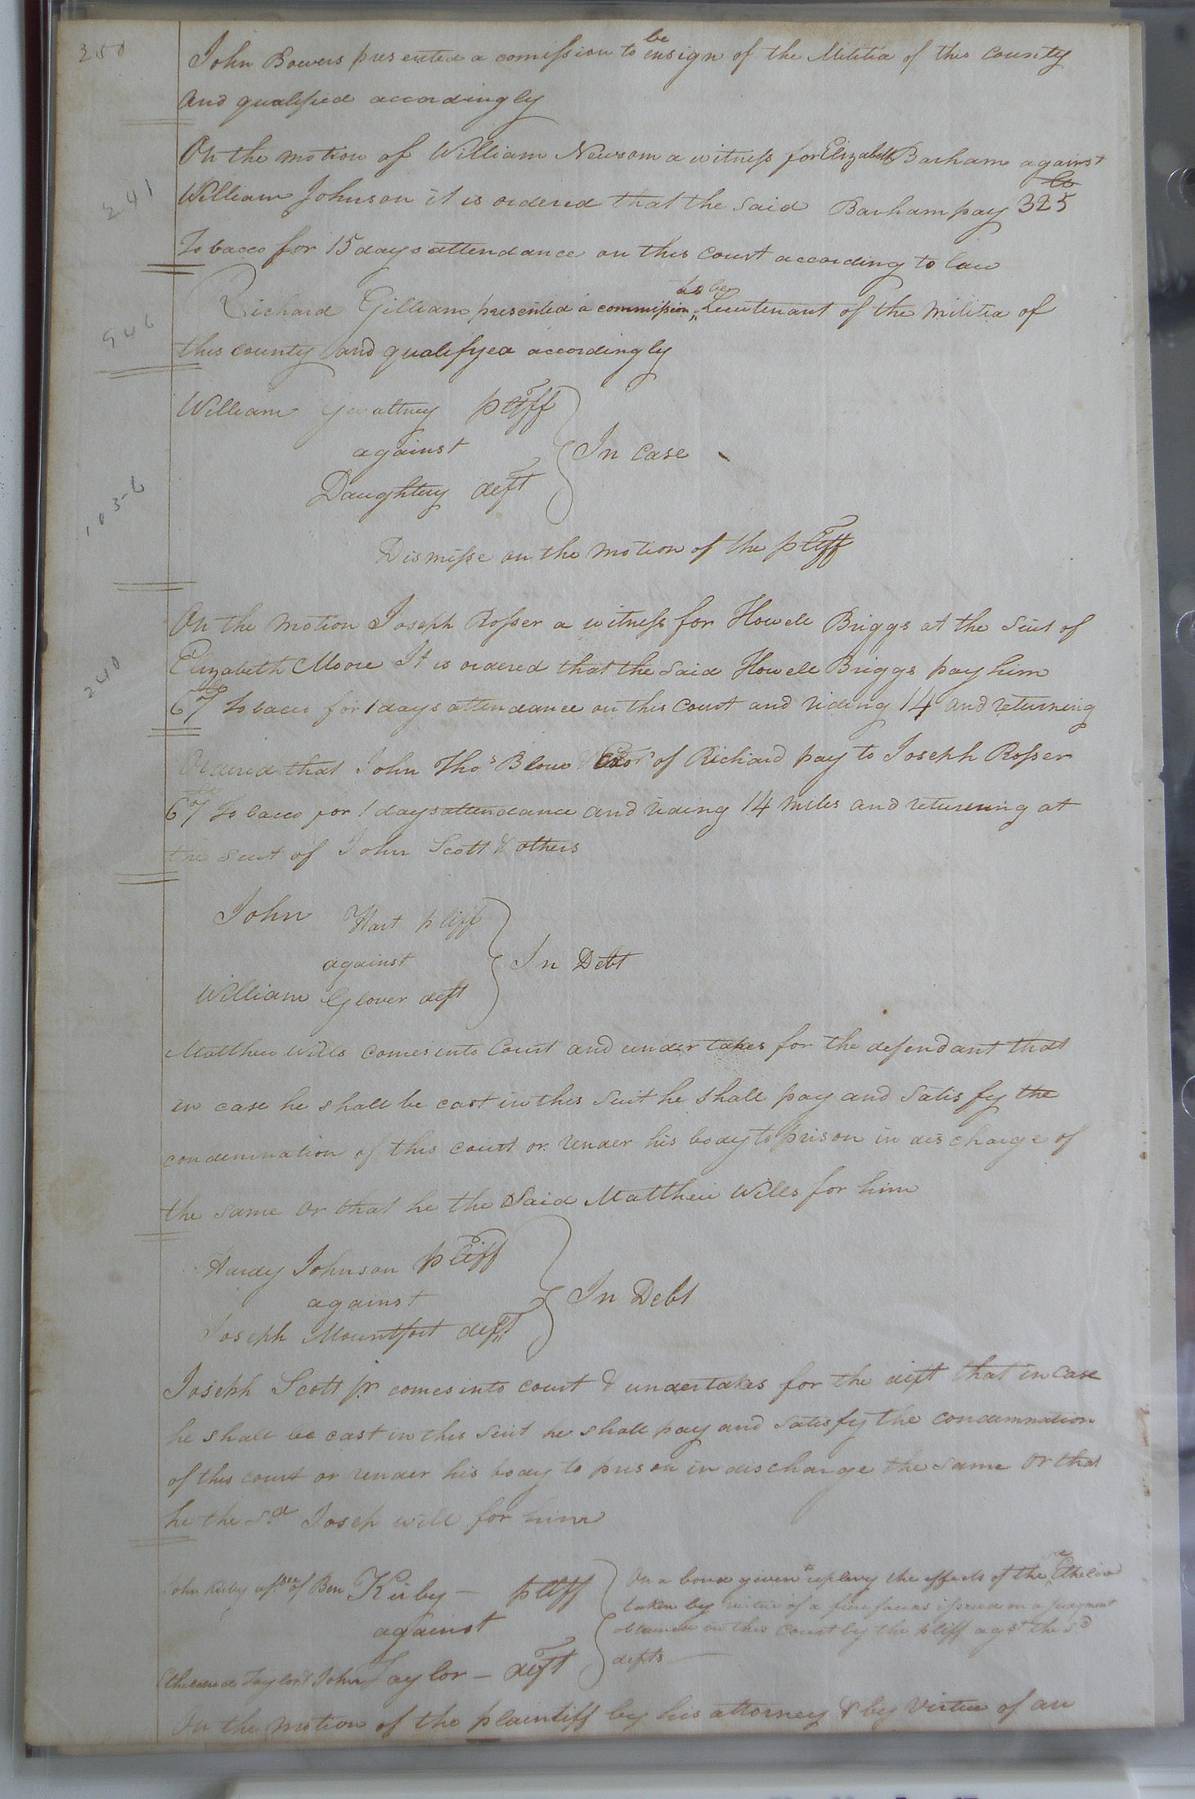 250
John Bowers presented a comission to be ensign of the Militia of this county
and qualified accordingly
On the motion of William Newsom a witness for Elizabeth Barham against
241
William Johnson it is ordered that the said Barham pay 325 lb
Tobacco for 15 days attendance on this court according to law
Richard Gilliam presented a commission to be Lieutenant of the Militia of
this county and qualifyed accordingly
William Gwaltney pltff
against
In case
Daughtry deft
Dismisse on the motion of the pltff
On the motion Joseph Rosser a witness for Howell Briggs at the suit of
Elizabeth Moore It is ordered that the said Howell Briggs pay him
240
67 lb tobacco for 1 days attendance on this court and riding 14 and returning
Ordered that John Thos Blow Exor of Richard pay to Joseph Rosser
67 lb tobacco for 1 days attendance and riding 14 miles and returning at
the suit of John Scott & others
John Hart pltff
against
In Debt
William Glover deft
Matthew Wills comes into Court and undertakes for the defendant that
in case he shall be cast in this suit he shall pay and satisfy the
condemnation of this court or render his body to prison in discharge of
the same or that he the Said Matthew Wills for him
Hardy Johnson pltff
against
In Debt
Joseph Mountfort deft
Joseph Scott jr comes into court & undertakes for the deft that in case
he shall be cast in this suit he shall pay and satisfy the condemnation
of this court or render his body to prison in discharge the same or that
he the sd Joseph will for him
John Kirby assee of Ben Kirby — pltff
against
Etheldred Taylor & John Taylor — deft
On a bond given to replevy the effects of the sd Etheldred
taken by virtue of a fieri facias issued on a judgment
obtained in this Court by the pltff agst the sd
defts
On the motion of the plaintiff by his attorney & by virtue of an